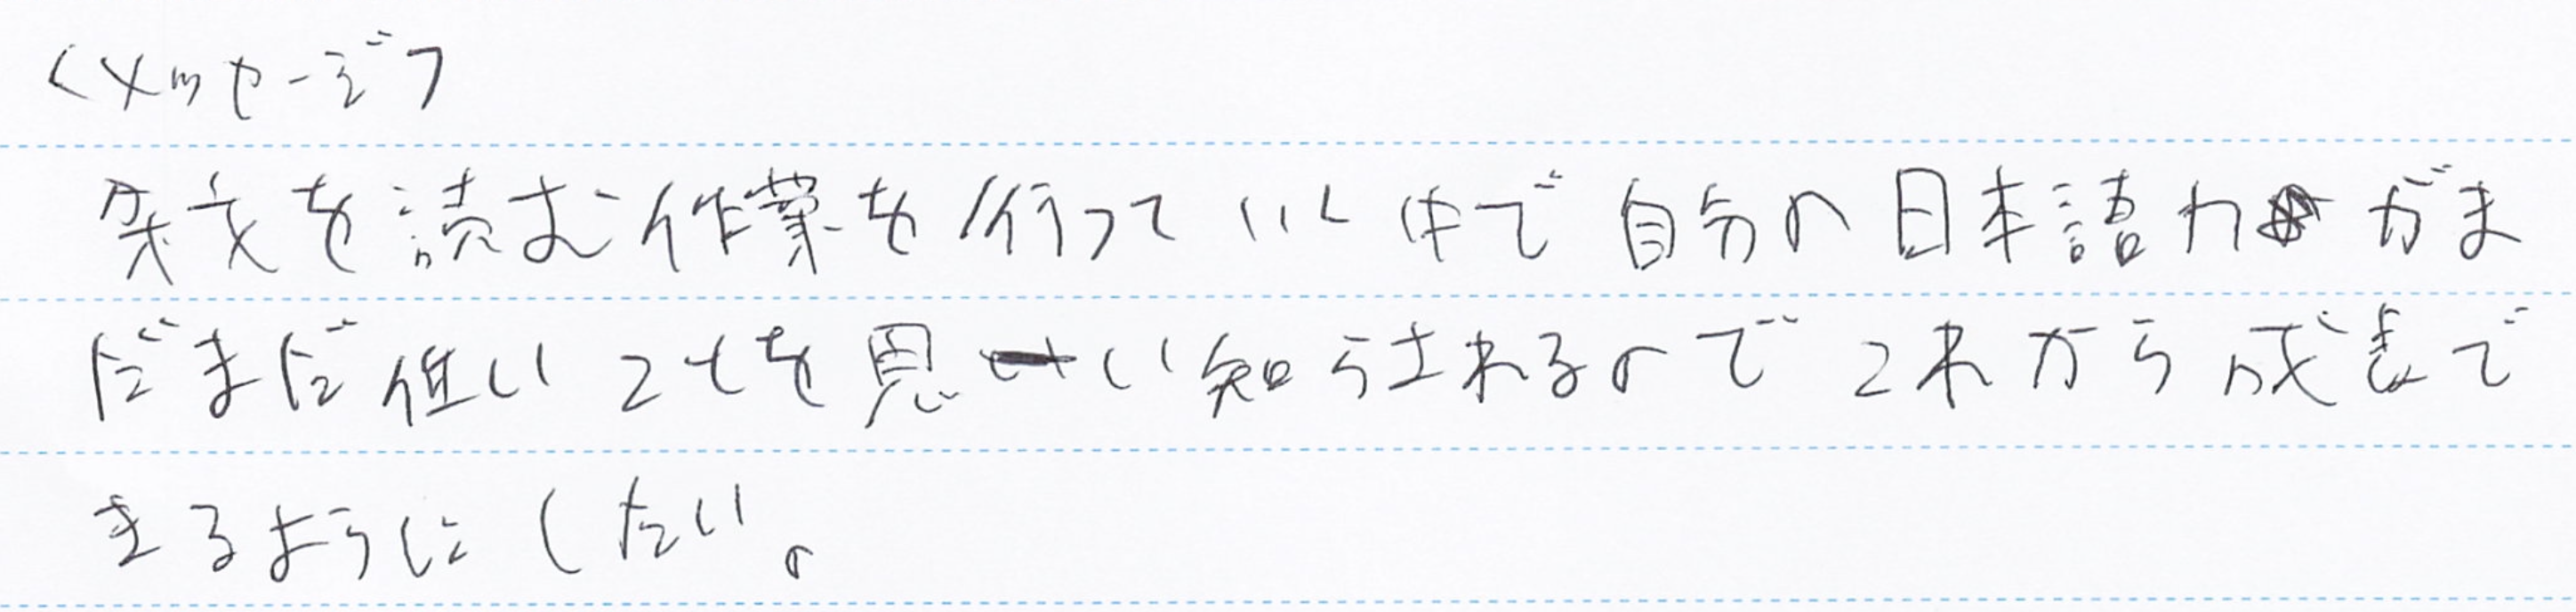 <メッセージ>
条文を読む作業を行っていく中で自分の日本語力がま
だまだ低いことを思い知らされるのでこれから成長で
きるようにしたい。